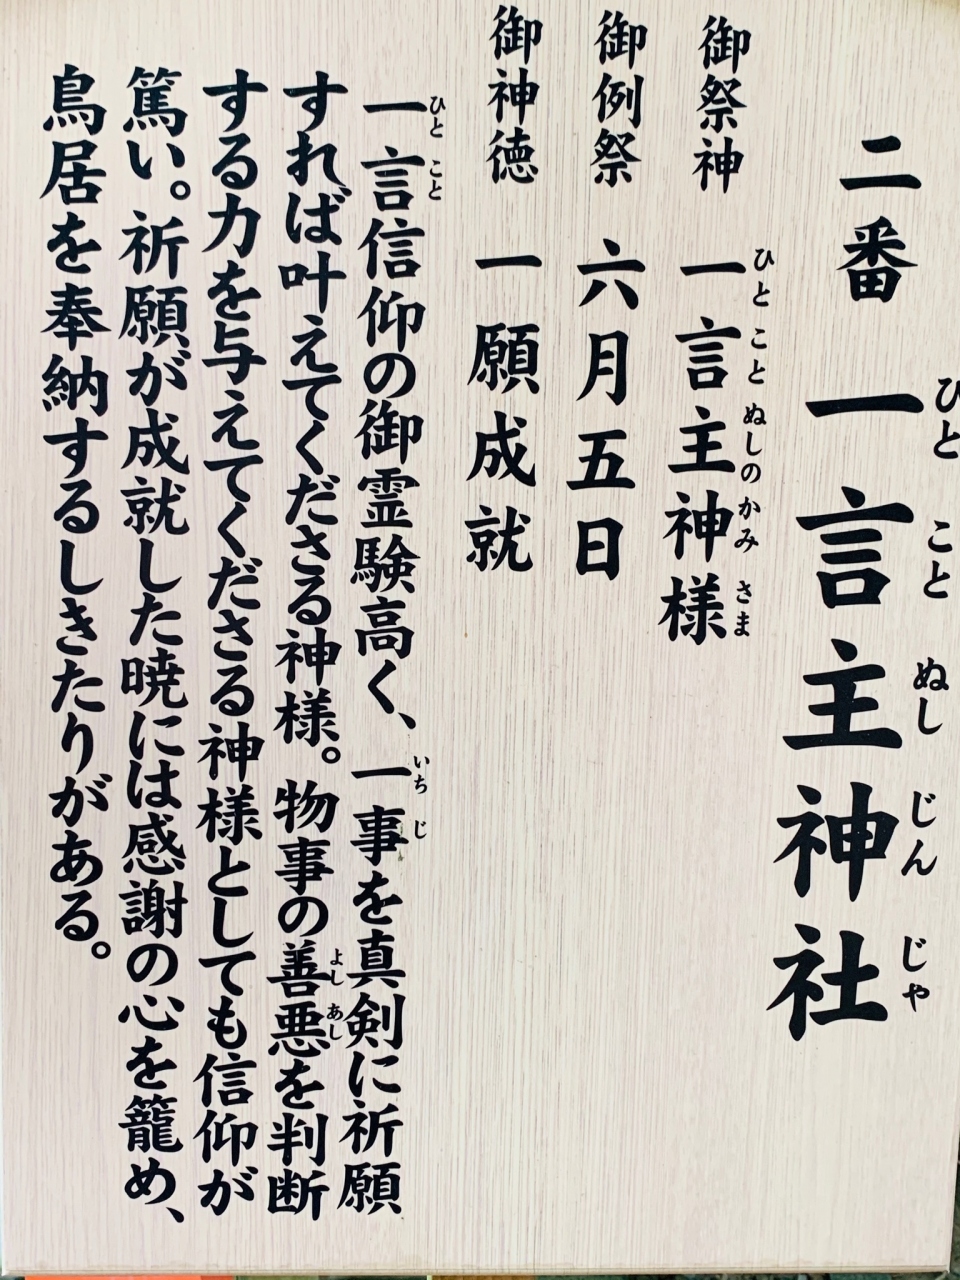 二番 一言主神社
ひと こと ぬし じん じゃ
御祭神 一言主神様
ひと こと ぬしの かみ さま
御例祭 六月五日
御神徳 一願成就
一言信仰の御霊験高く、一事を真剣に祈願
ひと こと いち じ
すれば叶えてくださる神様。物事の善悪を判断
よし あし
する力を与えてくださる神様としても信仰が
篤い。祈願が成就した暁には感謝の心を籠め、
鳥居を奉納するしきたりがある。